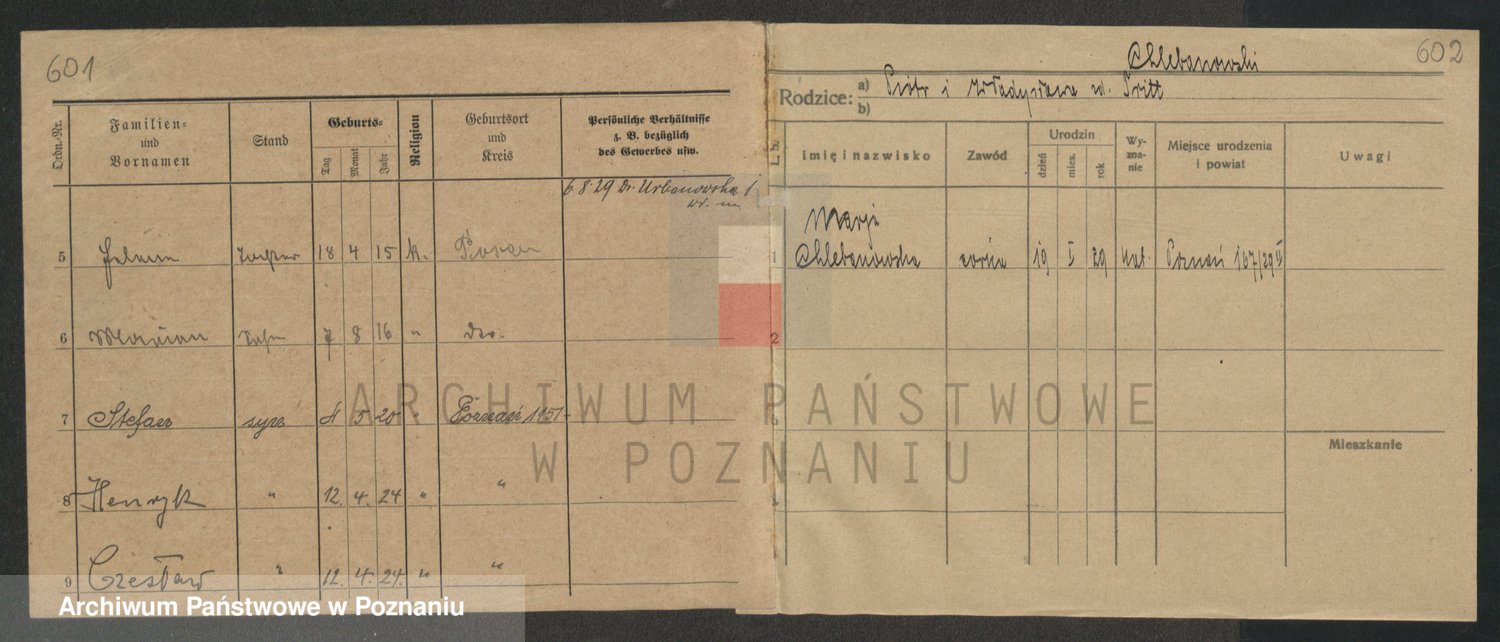 601
Ordn.-Nr.
Familien-
und
Vornamen
Stand
Geburts-
Tag
Monat
Jahr
Religion
Geburtsort
und
Kreis
Persönliche Verhältnisse
z. B. bezüglich
des Gewerbes usw.
6 8 29 Dr. Urbanowska 1
5 18 4 15 k. Posen
6 Marian Sohn 7 8 16 " do.
7 Stefan syn 4 5 20 " Poznań 1951
8 Henryk " 12. 4. 24 " "
9 Czesław " 12. 4. 24. " "
602
Chlebanowski
Rodzice:
a) Piotr i Władysława
b)
L. b.
Imię i nazwisko
Zawód
Urodzin
dzień
mies.
rok
Wy-
zna-
nie
Miejsce urodzenia
i powiat
Uwagi
Marja
1 Chlebanowska córka 19 I 29 kat. Poznań 167/29 II
2
3
4
Mieszkanie
ARCHIWUM PAŃSTWOWE
W POZNANIU
Archiwum Państwowe w Poznaniu